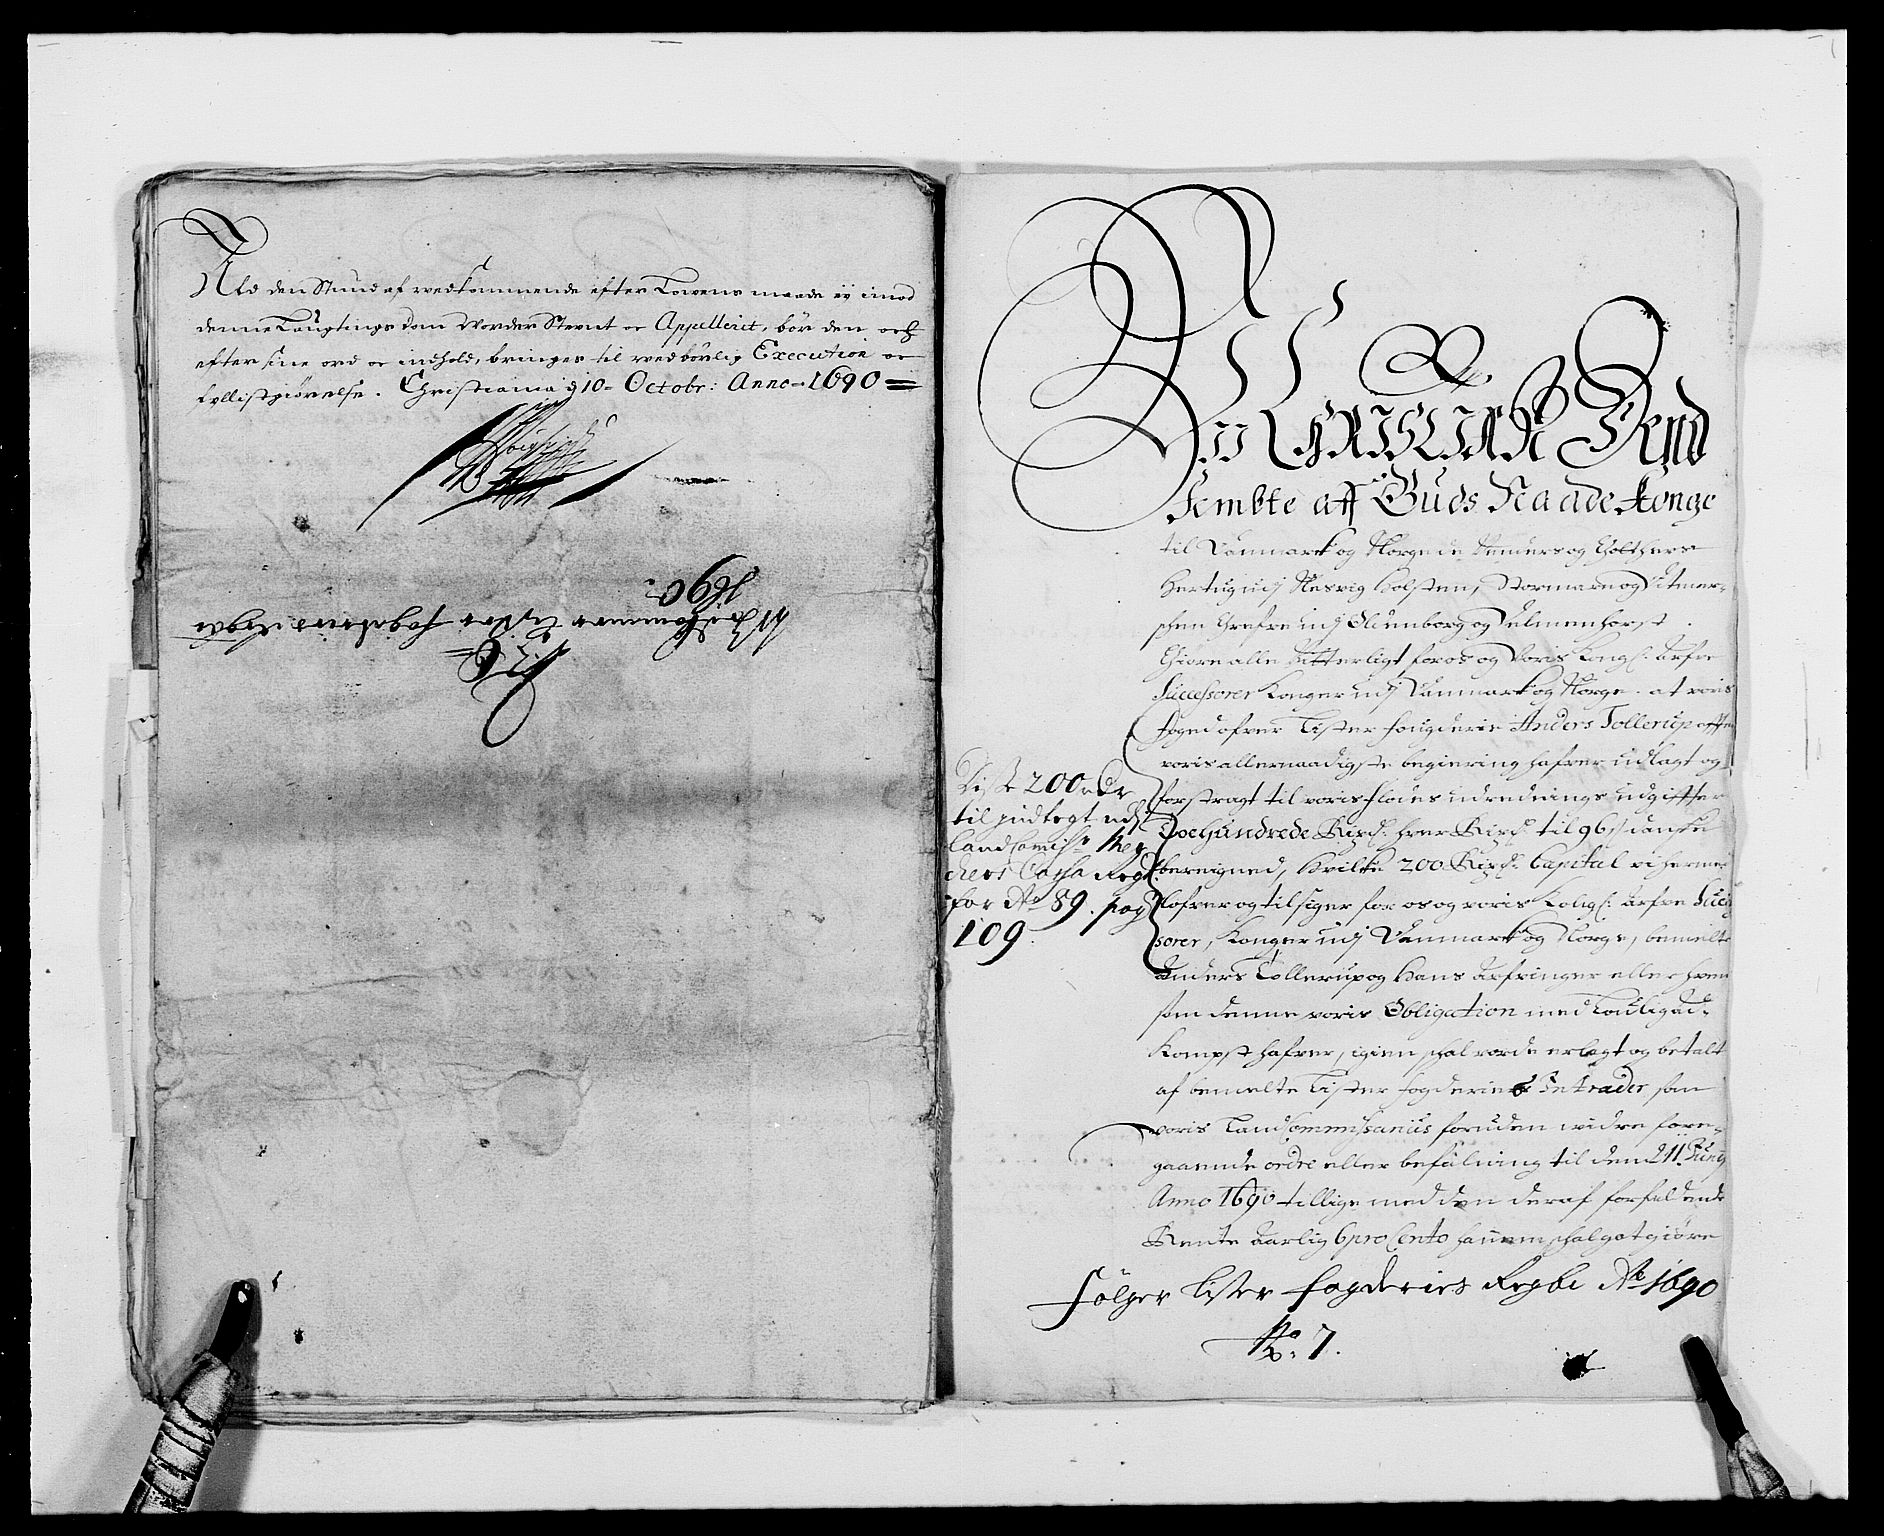 Ald den Stund af vedkommende efter Lowens maade ey imod
denne Laugtings dom vorder Stevnt oc Appelleret, bør den och
efter sine ord oc indhold, bringes til vedbørlig Execution oc
fyllistgiørelse. Christiania d 10 Octobr: Anno 1690
No 6
Lister fogderies Regbe
1690
Wii CHRISTIAN Dend
Fembte aff Guds Naade Konge
til Danmark og Norge de Venders og Gothers
Hertug udj Slesvig Holsten, Stormarn og Ditmer-
schen Grefve udj Oldenborg og Delmenhorst.
Giøre alle Vitterligt for os og Voris Kongl: Arfve
Successorer Konger udj Danmark og Norge. at voris
foged ofver Lister fougderie Anders Tollerup effter
voris allernaadigste begiering hafver udlagt og
forstragt til voris flodes udrednings udgiffter
Toehundrede Rixd: hver Rixd: til 96 s danske
bereigned, Hvilke 200 Rixd: Capital vi hermed
lofver og tilsiger for os og voris Kongl: Arfve Succes
sorer, Konger udj Danmark og Norge, bemelte
Anders Tollerup og Hans Arfvinger eller hvem
som denne voris Obligation med Loulig ad-
komst hafver, igien schal vorde erlagt og betalt
af bemelte Lister fogderies Intrader, som
voris Landcommissarius foruden vidre fore-
gaaende ordre eller befalning til den 211 Junij
Anno 1690 tillige med den deraf forfaldende
Rente aarlig 6 pro Cento hannem schal gotgiøre
Disse 200 rdr
til indtegt udj
Landcomiss:
Cassa Regb:
for Ao 89. pag
109.
Følger Lister fogderies Regbe Ao 1690
No. 7.